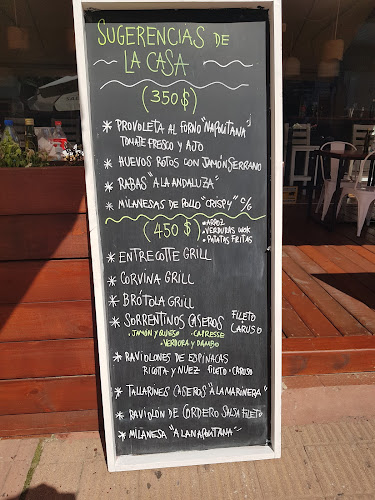 SUGERENCIAS DE
LA CASA
(350$)
* PROVOLETA AL FORNO "NAPOLITANA"
TOMATE FRESCO Y AJO
* HUEVOS ROTOS CON JAMÓN SERRANO
* RABAS "A LA ANDALUZA"
* MILANESAS DE POLLO "CRISPY" C/
• ARROZ
• VERDURAS WOK
• PATATAS FRITAS
(450$)
* ENTRECOTTE GRILL
* CORVINA GRILL
* BRÓTOLA GRILL
* SORRENTINOS CASEROS FILETO CARUSO
• JAMÓN Y QUESO • CAPRESSE
• VERDURA Y DAMBO
* RAVIOLONES DE ESPINACAS
RICOTA Y NUEZ FILETO • CARUSO
* TALLARINES CASEROS "A LA MARINERA"
* RAVIOLÓN DE CORDERO SALSA FILETO
* MILANESA "A LA NAPOLITANA"